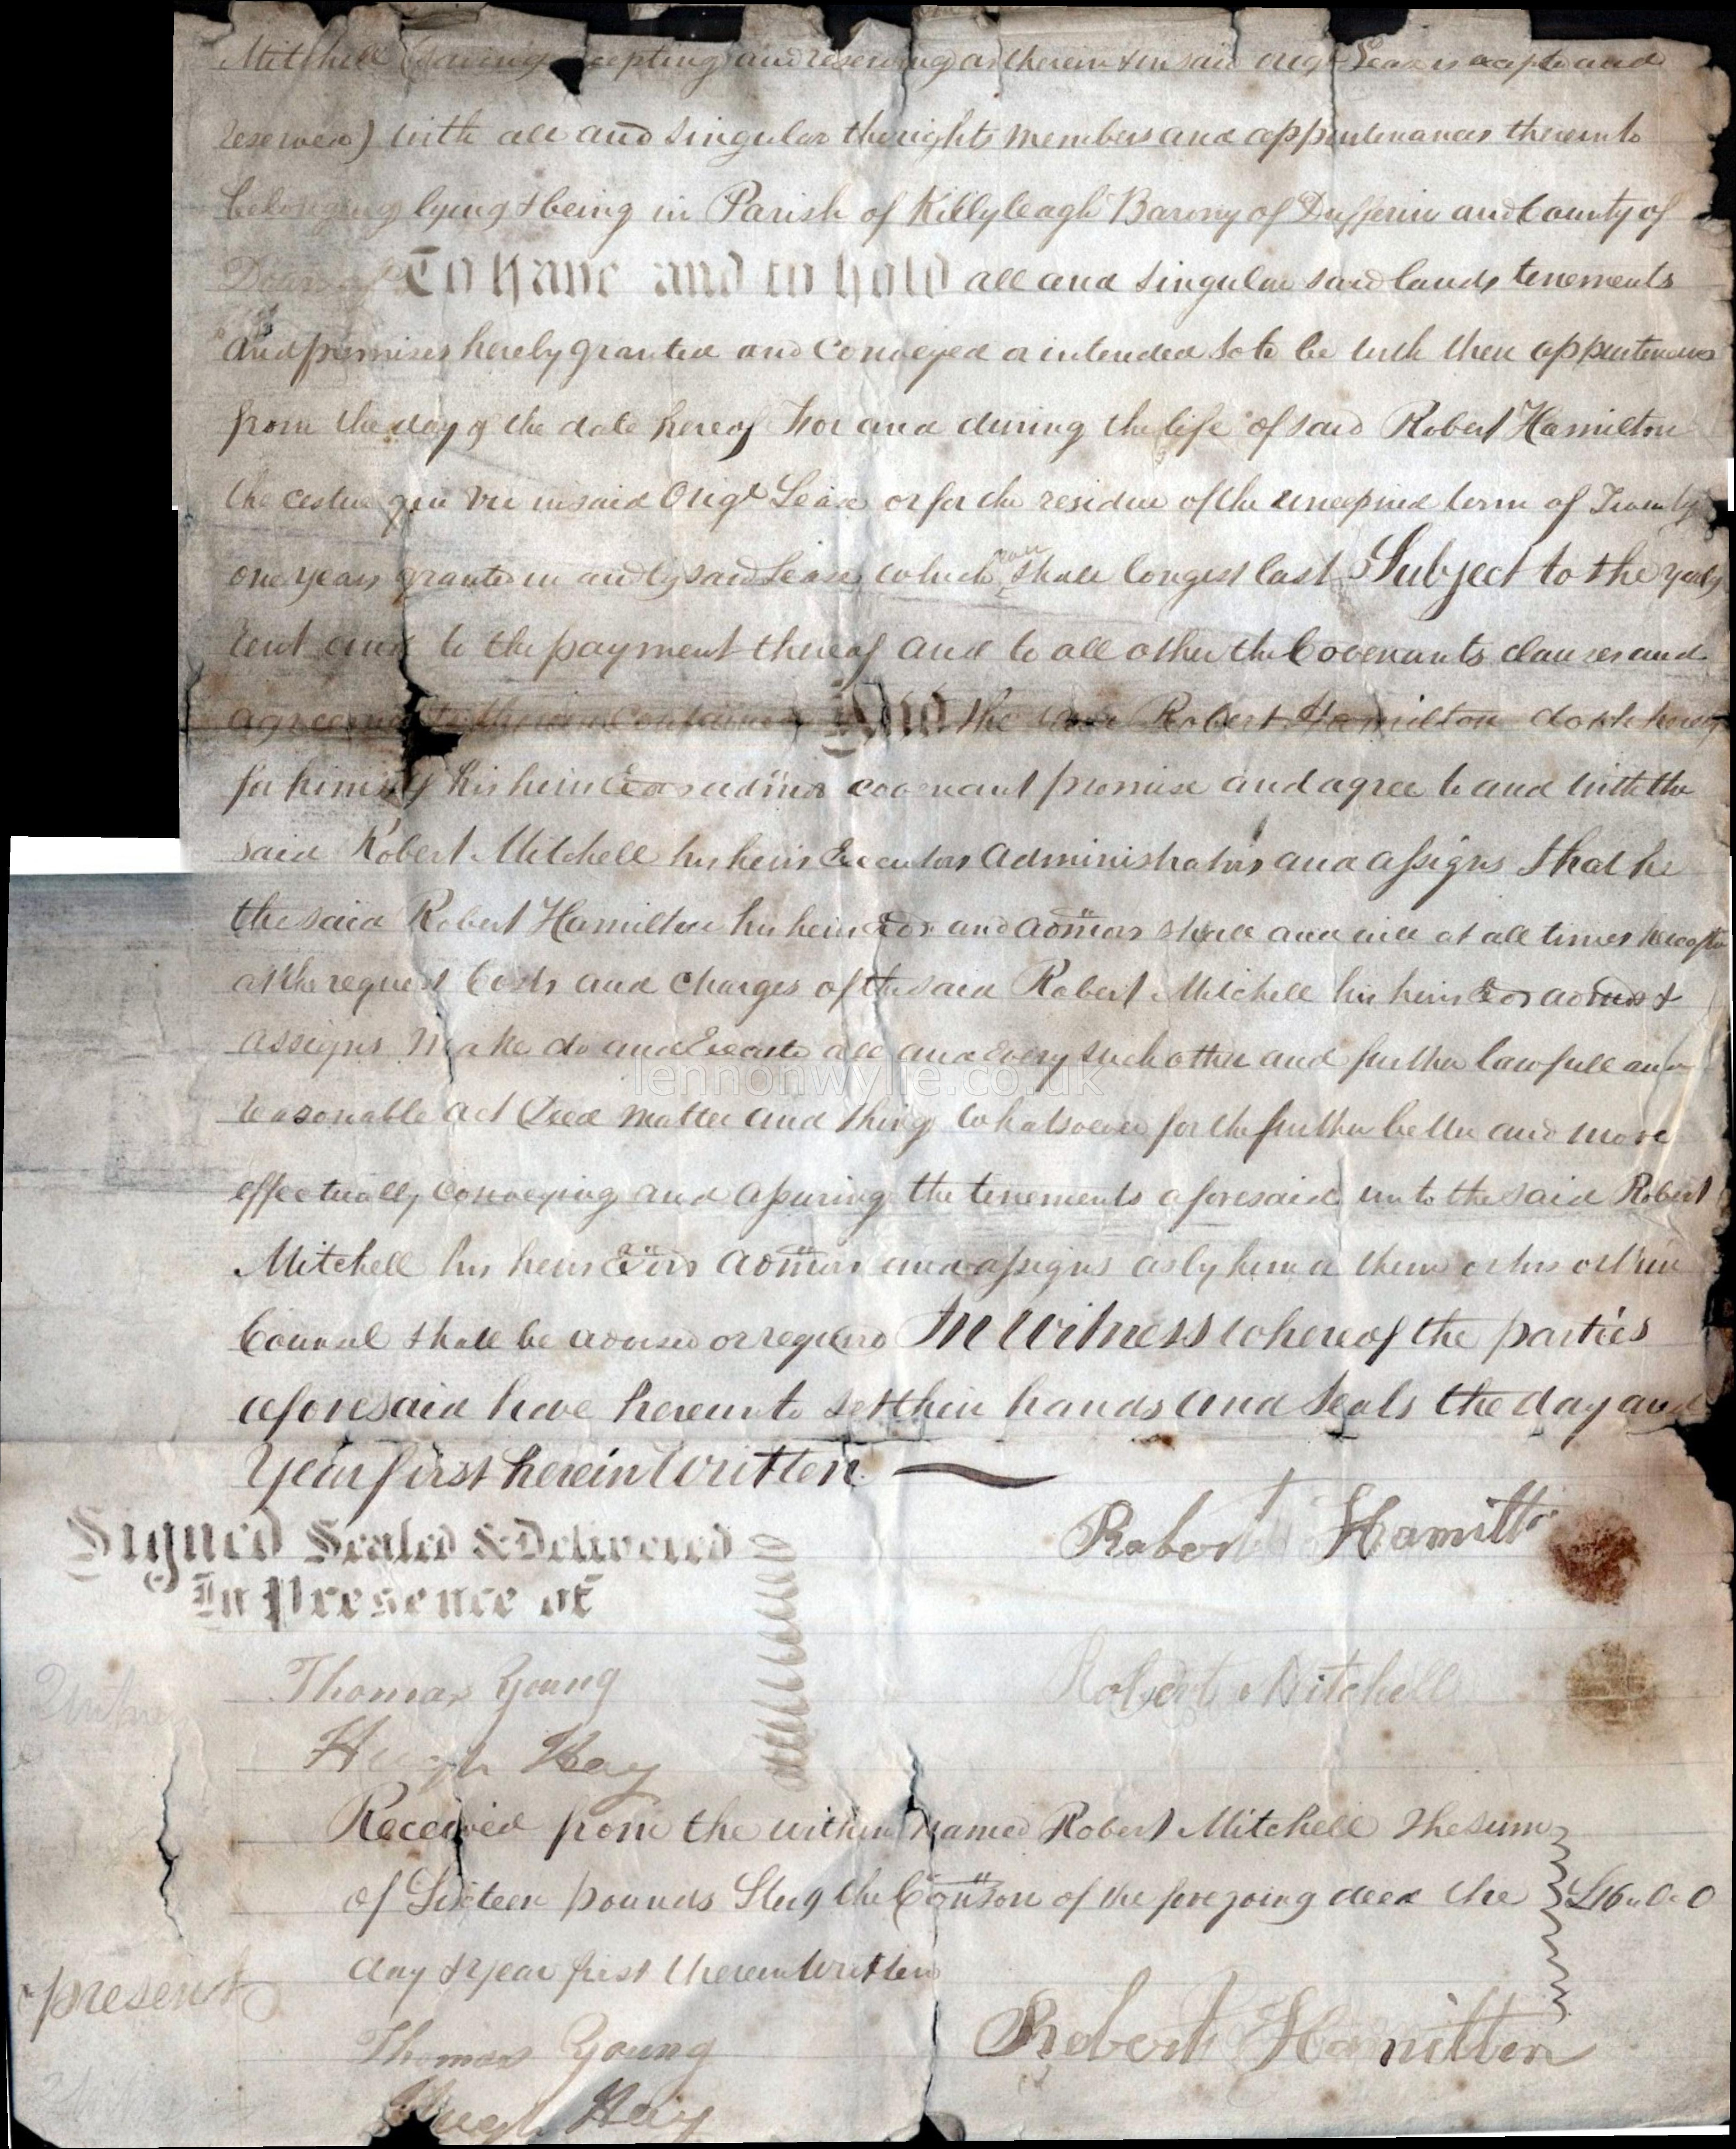 Mitchell (saving excepting and reserving as therein & in said orig^l Lease is excepted and
reserved) with all and singular the rights members and appurtenances thereunto
belonging lying & being in Parish of Killyleagh Barony of Dufferin and County of
Down To have and to hold all and singular said lands tenements
and premises hereby granted and conveyed or intended so to be with their appurtenances
from the day of the date hereof For and during the life of said Robert Hamilton
the cestue que vie in said Orig^l Lease or for the residue of the unexpired term of Twenty
one years granted in and by said Lease which shall longest last Subject to the yearly
rent and to the payment thereof and to all other the Covenants clauses and
agreements therein contained And the said Robert Hamilton doth hereby
for himself his heirs Exors admors covenant promise and agree to and with the
said Robert Mitchell his heirs Executors Administrators and assigns that he
the said Robert Hamilton his heirs Exors and admors shall and will at all times hereafter
at the request Costs and Charges of the said Robert Mitchell his heirs Exors admors &
assigns Make do and Execute all and every such other and further lawfull and
reasonable act Deed matter and thing whatsoever for the further better and more
effectually conveying and assuring the tenements aforesaid unto the said Robert
Mitchell his heirs Exors Admors and assigns as by him or them or his or their
Counsel shall be advised or required In Witness whereof the parties
aforesaid have hereunto set their hands and seals the day and
Year first herein Written
Signed Sealed & Delivered
In Presence of
Robert Hamilto
Thomas Young
Robert Mitchell
Hugh Hay
Received from the within named Robert Mitchell the sum
of Sixteen pounds Sterg the Conson of the foregoing deed the £16"0"0
day & year first therein Written
present
Thomas Young
Robert Hamilton
Hugh Hay
lennonwylie.co.uk